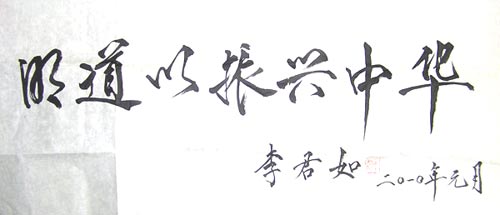 明道以振兴中华
李君如 二〇一〇年元月